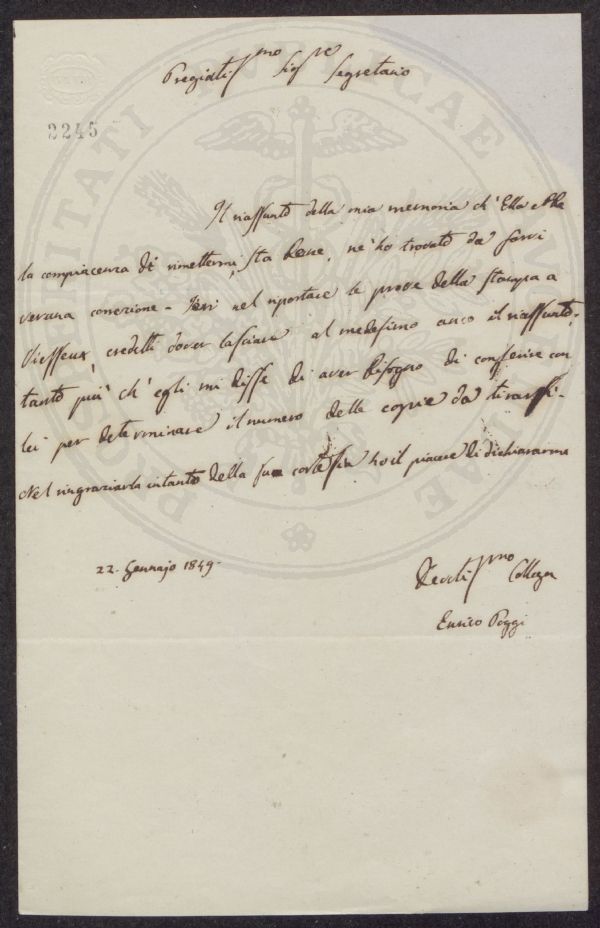 Pregiatissmo Sigre Segretario
2245
Il riassunto della mia memoria ch' Ella ebbe
la compiacenza di rimettermi sta bene, nè ho trovato da farvi
veruna correzione - Ieri nel riportare le prove della stampa a
Vieusseux, credetti dover lasciare al medesimo anco il riassunto,
tanto più ch' egli mi disse di aver bisogno di conferire con
lei per determinare il numero delle copie da tirarsi -
Nel ringraziarla intanto della sua cortesia ho il piacere di dichiararmi
22. Gennajo 1849.
Devotissmo Collega
Enrico Poggi
PROSPERITATI PUBLICAE